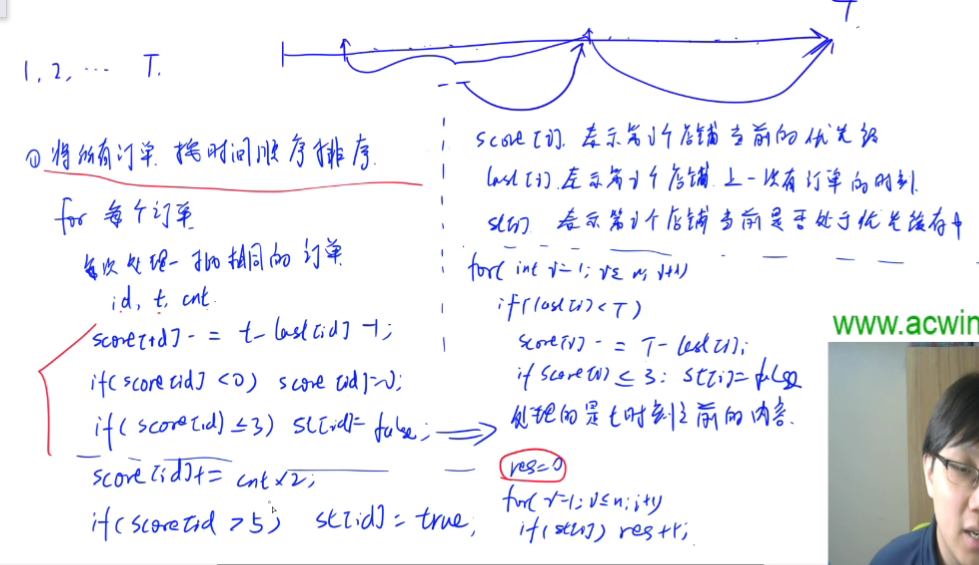 T
1, 2, … T.
① 将所有订单 按时间顺序排序.
for 每个订单
每次处理一批相同的订单
id, t, cnt
score[id] -= t - last[id] -1;
if(score[id] <0) score[id]=0;
if(score[id] ≤3) st[id]= false;
score[id]+= cnt×2;
if(score[id >5) st[id] = true;
score[i]. 表示第i个店铺当前的优先级
last[i]. 表示第i个店铺 上一次有订单的时刻
st[i] 表示第i个店铺当前是否处于优先缓存中
for( int i=1; i≤ n; i++)
if(last[i]<T)
score[i] -= T-last[i];
if score[i] ≤ 3: st[i]=false
处理的是t时刻之前的内容.
res=0
for( i=1; i≤n; i++)
if(st[i]) res++;
www.acwin